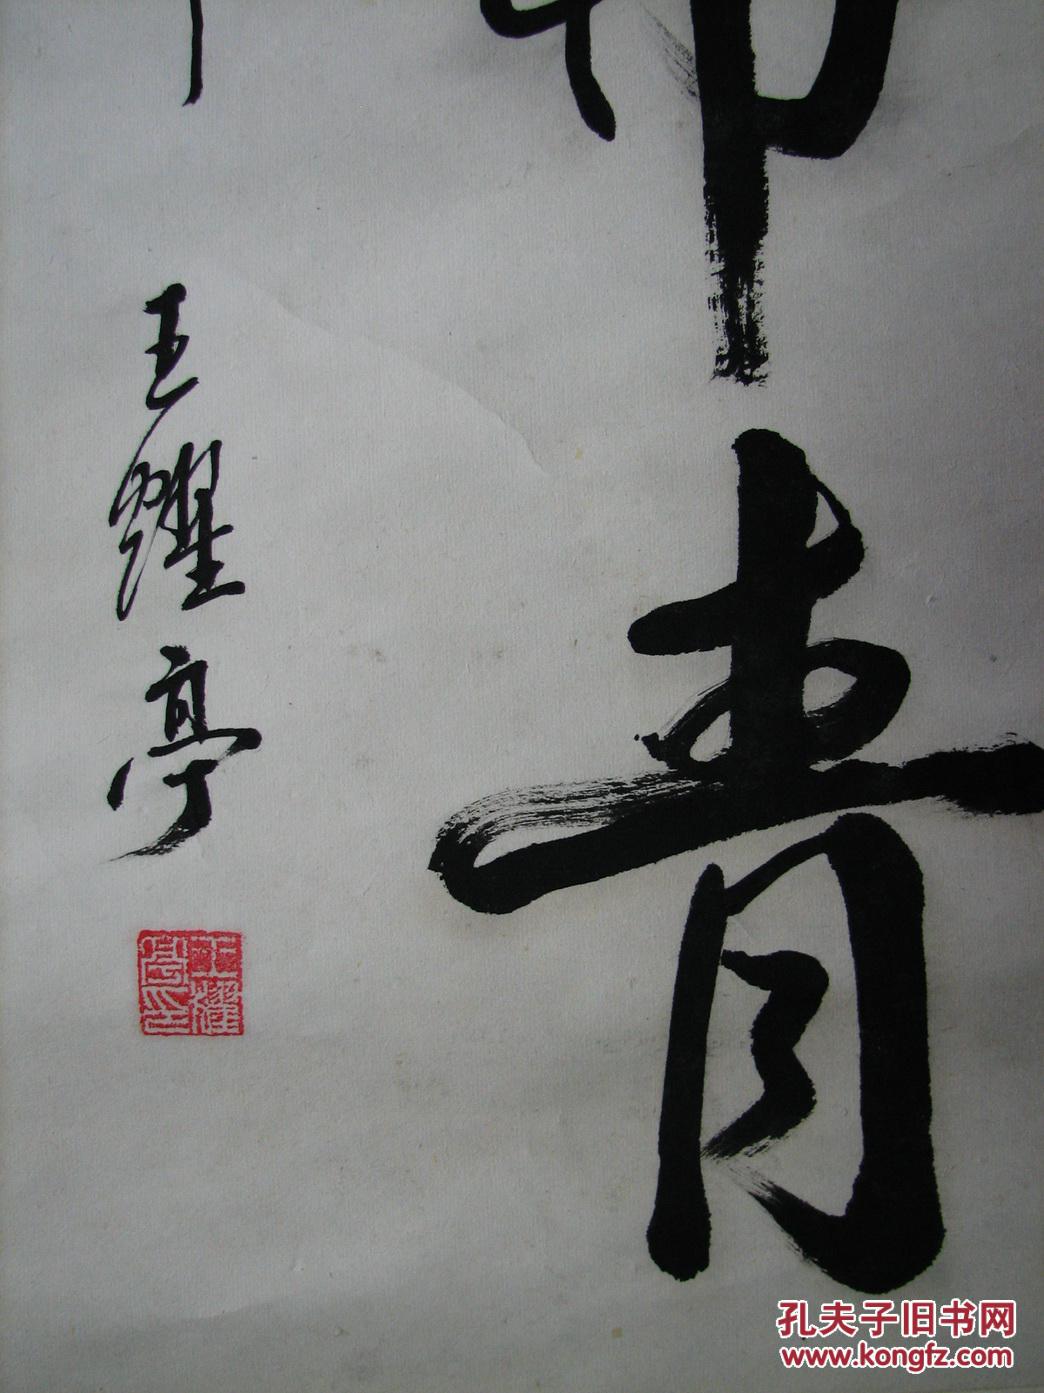 青
王耀亭
王耀亭印
孔夫子旧书网
www.kongfz.com